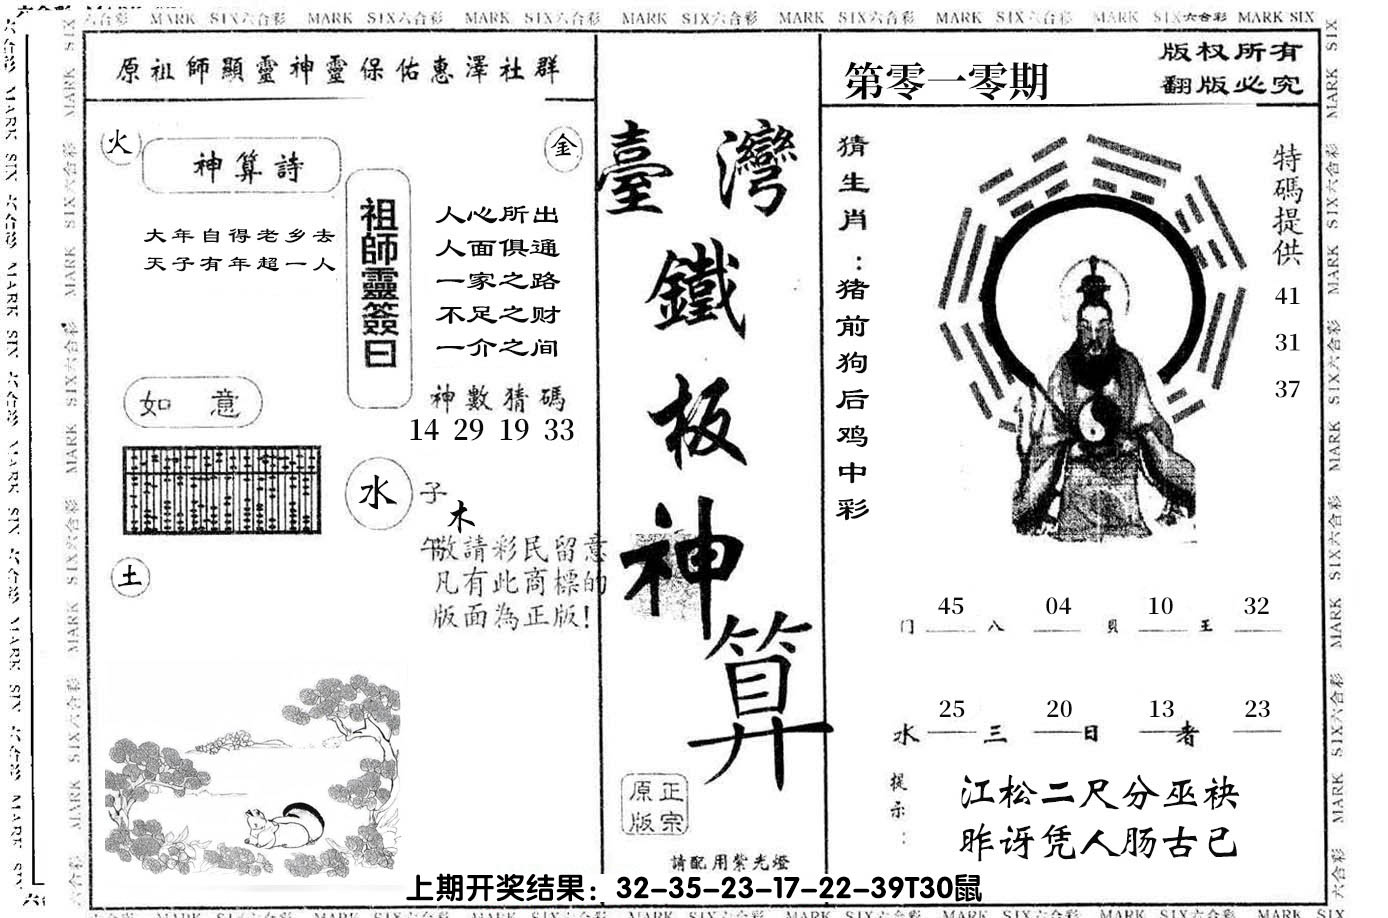 MARK SIX六合彩 MARK SIX六合彩 MARK SIX六合彩 MARK SIX六合彩 MARK SIX六合彩 MARK SIX六合彩 MARK SIX六合彩 MARK SIX
原祖師顯靈神靈保佑惠澤社群
火
神算詩
金
大年自得老乡去
天子有年超一人
祖師靈簽曰
人心所出
人面俱通
一家之路
不足之财
一介之间
神數猜碼
14 29 19 33
如 意
水
子
木
午
敬請彩民留意
凡有此商標的
版面為正版!
土
臺灣
鐵
板
神
算
正宗
原版
請配用紫光燈
第零一零期
版权所有
翻版必究
猜生肖:猪前狗后鸡中彩
特碼提供
41
31
37
45 04 10 32
门 八 贝 王
25 20 13 23
水 三 日 者
提示:
江松二尺分巫袂
昨讶凭人肠古已
上期开奖结果：32-35-23-17-22-39T30鼠